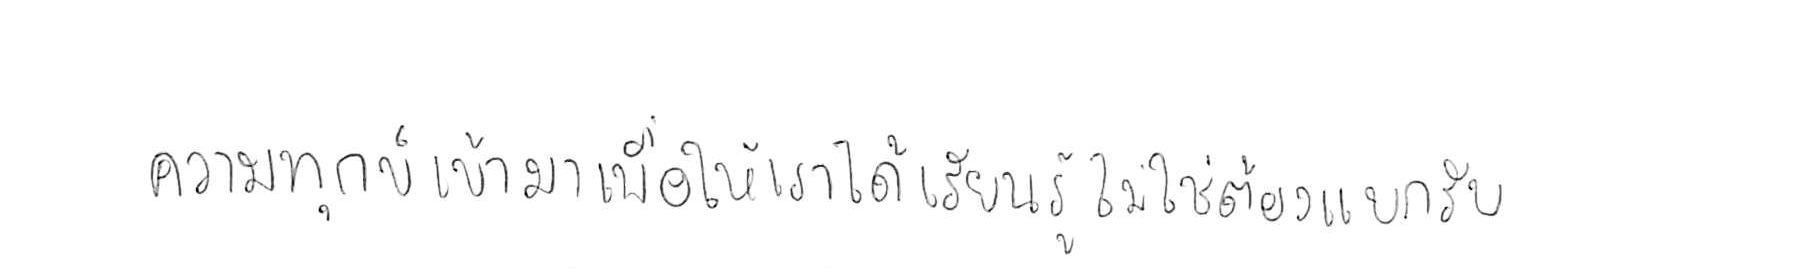 ความทุกข์เข้ามาเพื่อให้เราได้เรียนรู้ ไม่ใช่ต้องแบกรับ